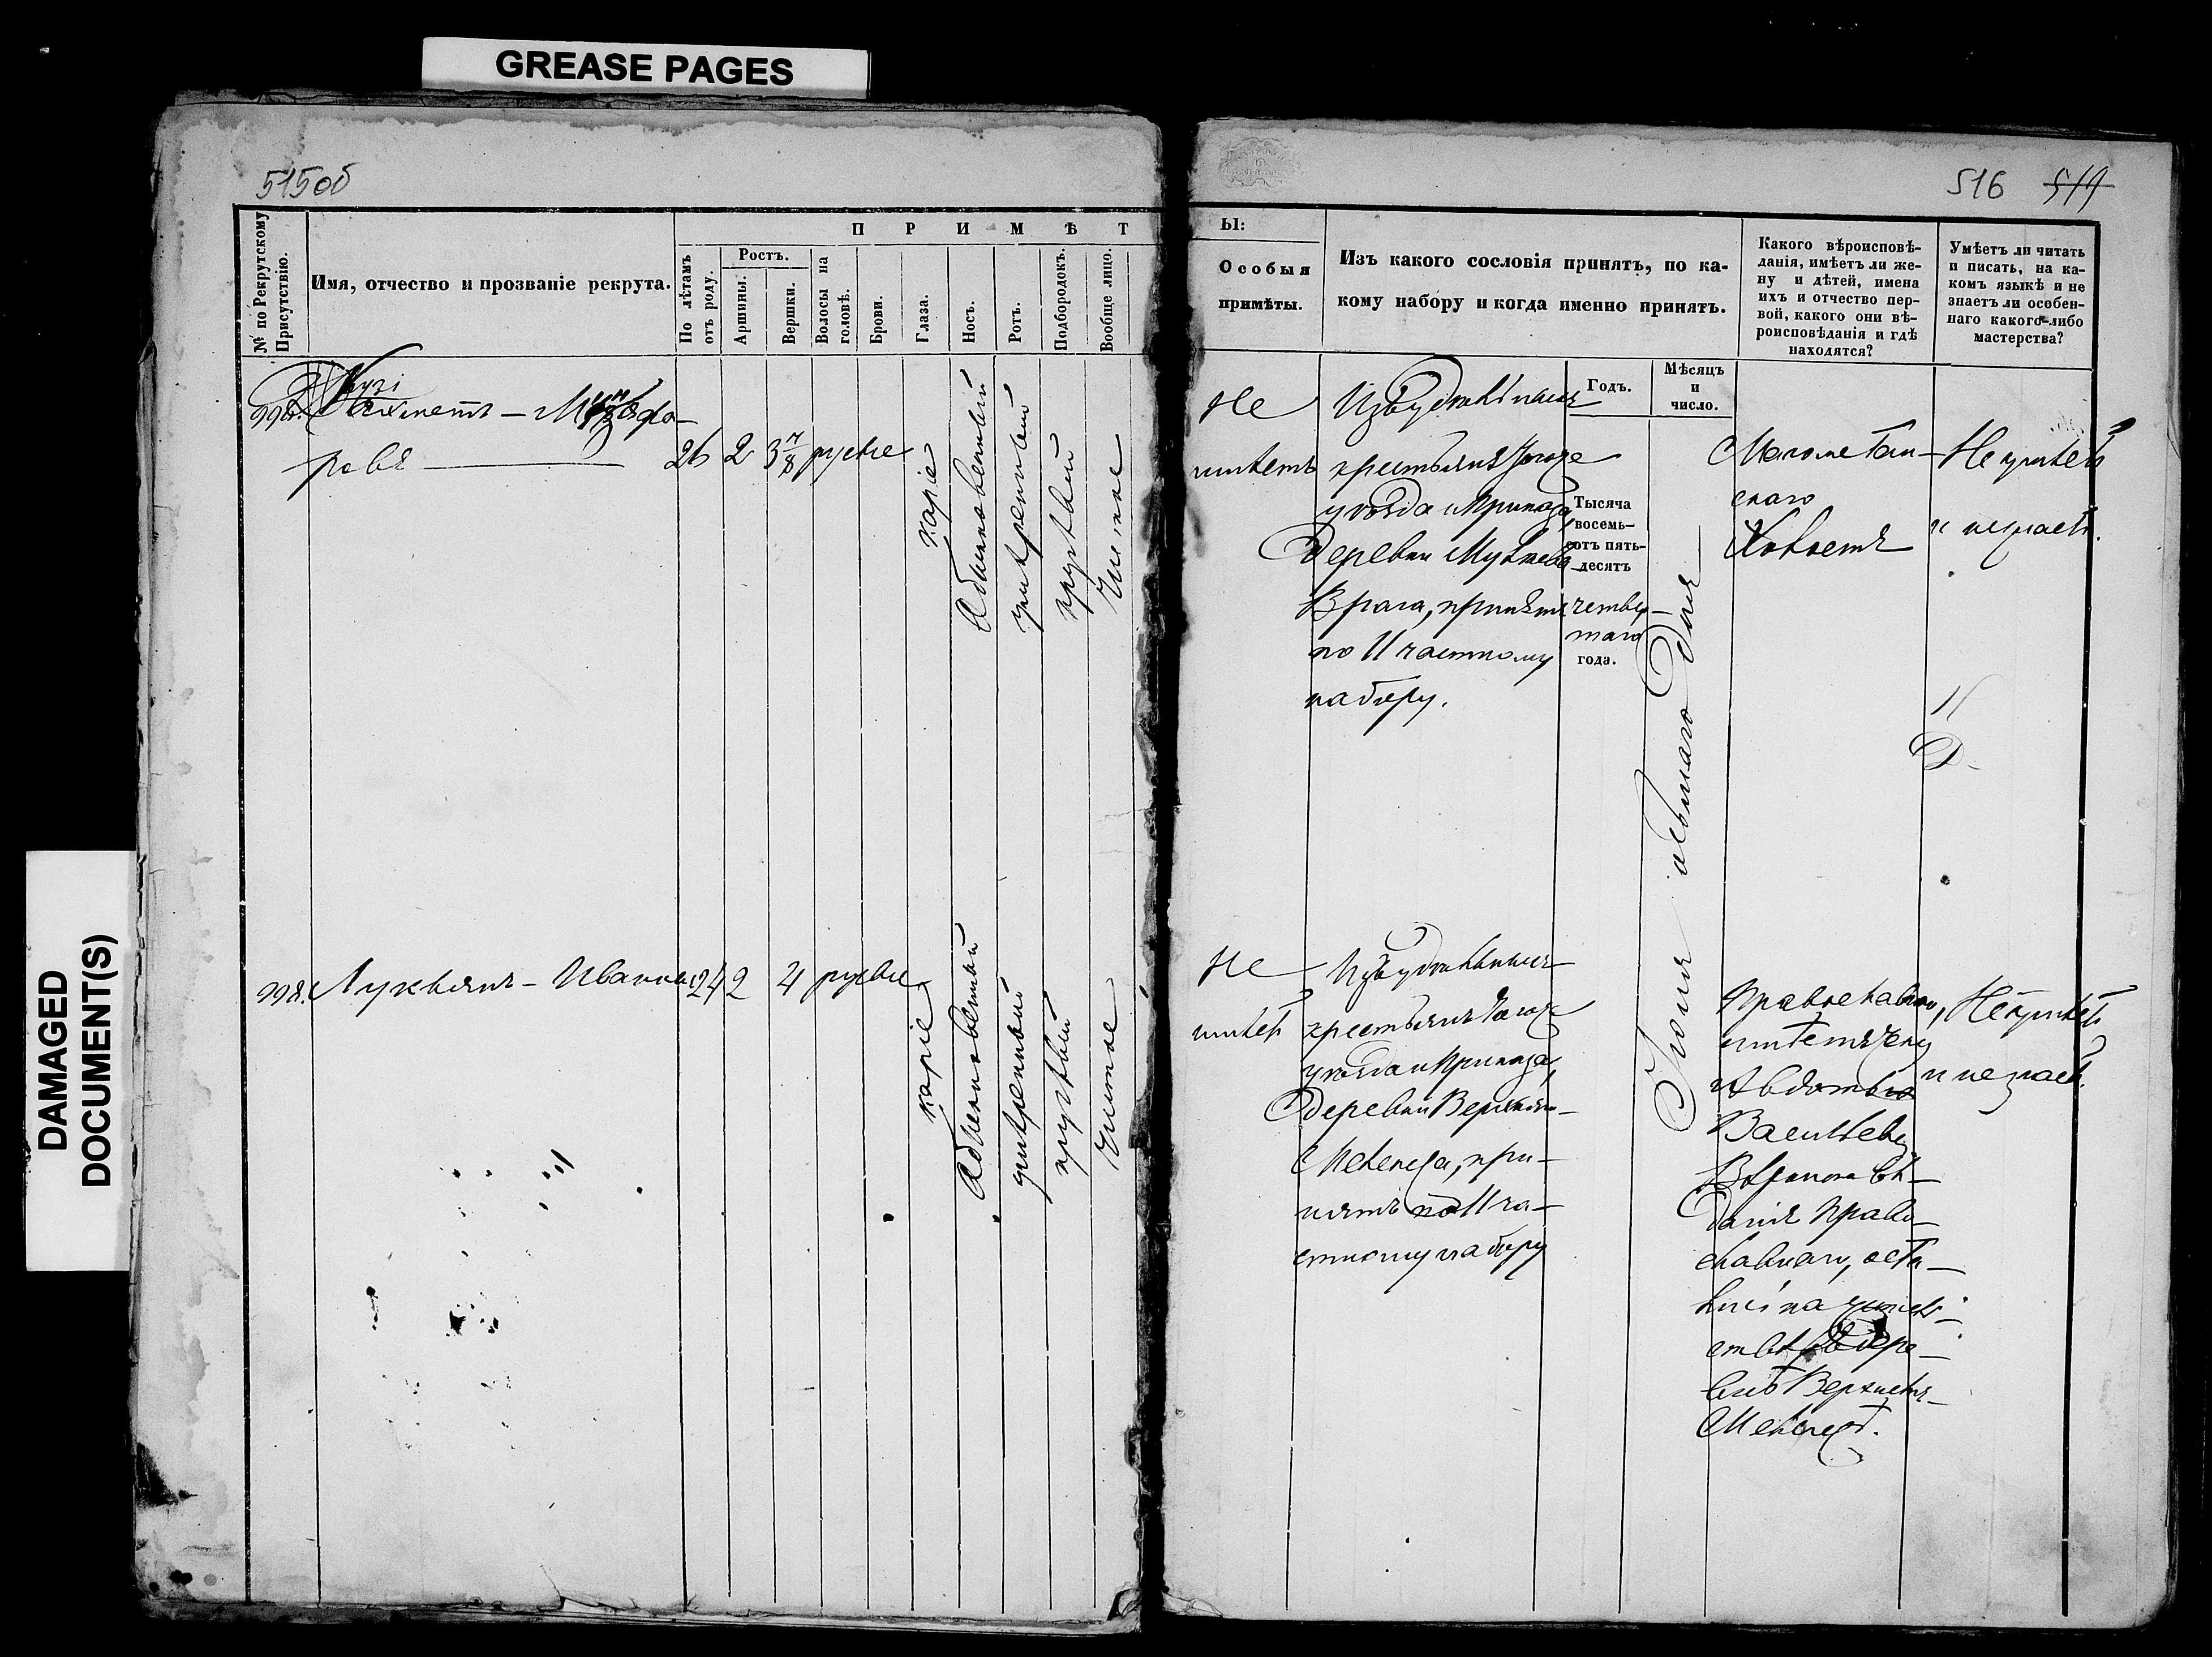 GREASE PAGES
DAMAGED
DOCUMENT(S)
515об
№ по Рекрутскому
Присутствію.
Имя, отчество и прозваніе рекрута.
П Р И М Ѣ Т
По лѣтамъ
отъ роду.
Ростъ.
Аршины:
Вершки.
Волосы на
головѣ.
Брови.
Глаза.
Носъ.
Ротъ.
Подбородокъ.
Вообще лицо.
26 2 3 7/8 русые
карie
Обыкновенный
умѣренный
круглый
Чистое
998. Лукьянъ – Ивановъ 24 2 4 русые
карie
Обыкновенный
умѣренный
круглый
Чистое
516 519
Ы:
Особыя
примѣты.
Изъ какого сословія принятъ, по ка-
кому набору и когда именно принятъ.
Годъ.
Мѣсяцъ
и
число.
Какого вѣроисповѣ-
данія, имѣетъ ли же-
ну и дѣтей, имена
ихъ и отчество пер-
вой, какого они вѣ-
роисповѣданія и гдѣ
находятся?
Умѣетъ ли читать
и писать, на ка-
комъ языкѣ и не
знаетъ ли особен-
наго какого-либо
мастерства?
Не
имѣетъ
Изъ удѣльныхъ
крестьянъ тогоже
уѣзда и Приказа,
Деревни
Врага, принятъ
по 11 частному
набору.
Тысяча
восемь-
сотъ пять-
десятъ
четвер-
таго
года.
Іюня Дня
Магометан-
скаго
Холостъ
Не умѣетъ
и не знаетъ.
Не
имѣетъ
Изъ удѣльныхъ
крестьянъ тогоже
уѣзда и Приказа,
деревни
при-
нятъ по 11 ча-
стному набору
Православнаго,
имѣетъ жену
Авдотью
Васильеву
Вѣроисповѣ-
данія Право-
славнаго, оста-
лась на жител-
ствѣ въ дере-
внѣ
Не умѣетъ
и не знаетъ.